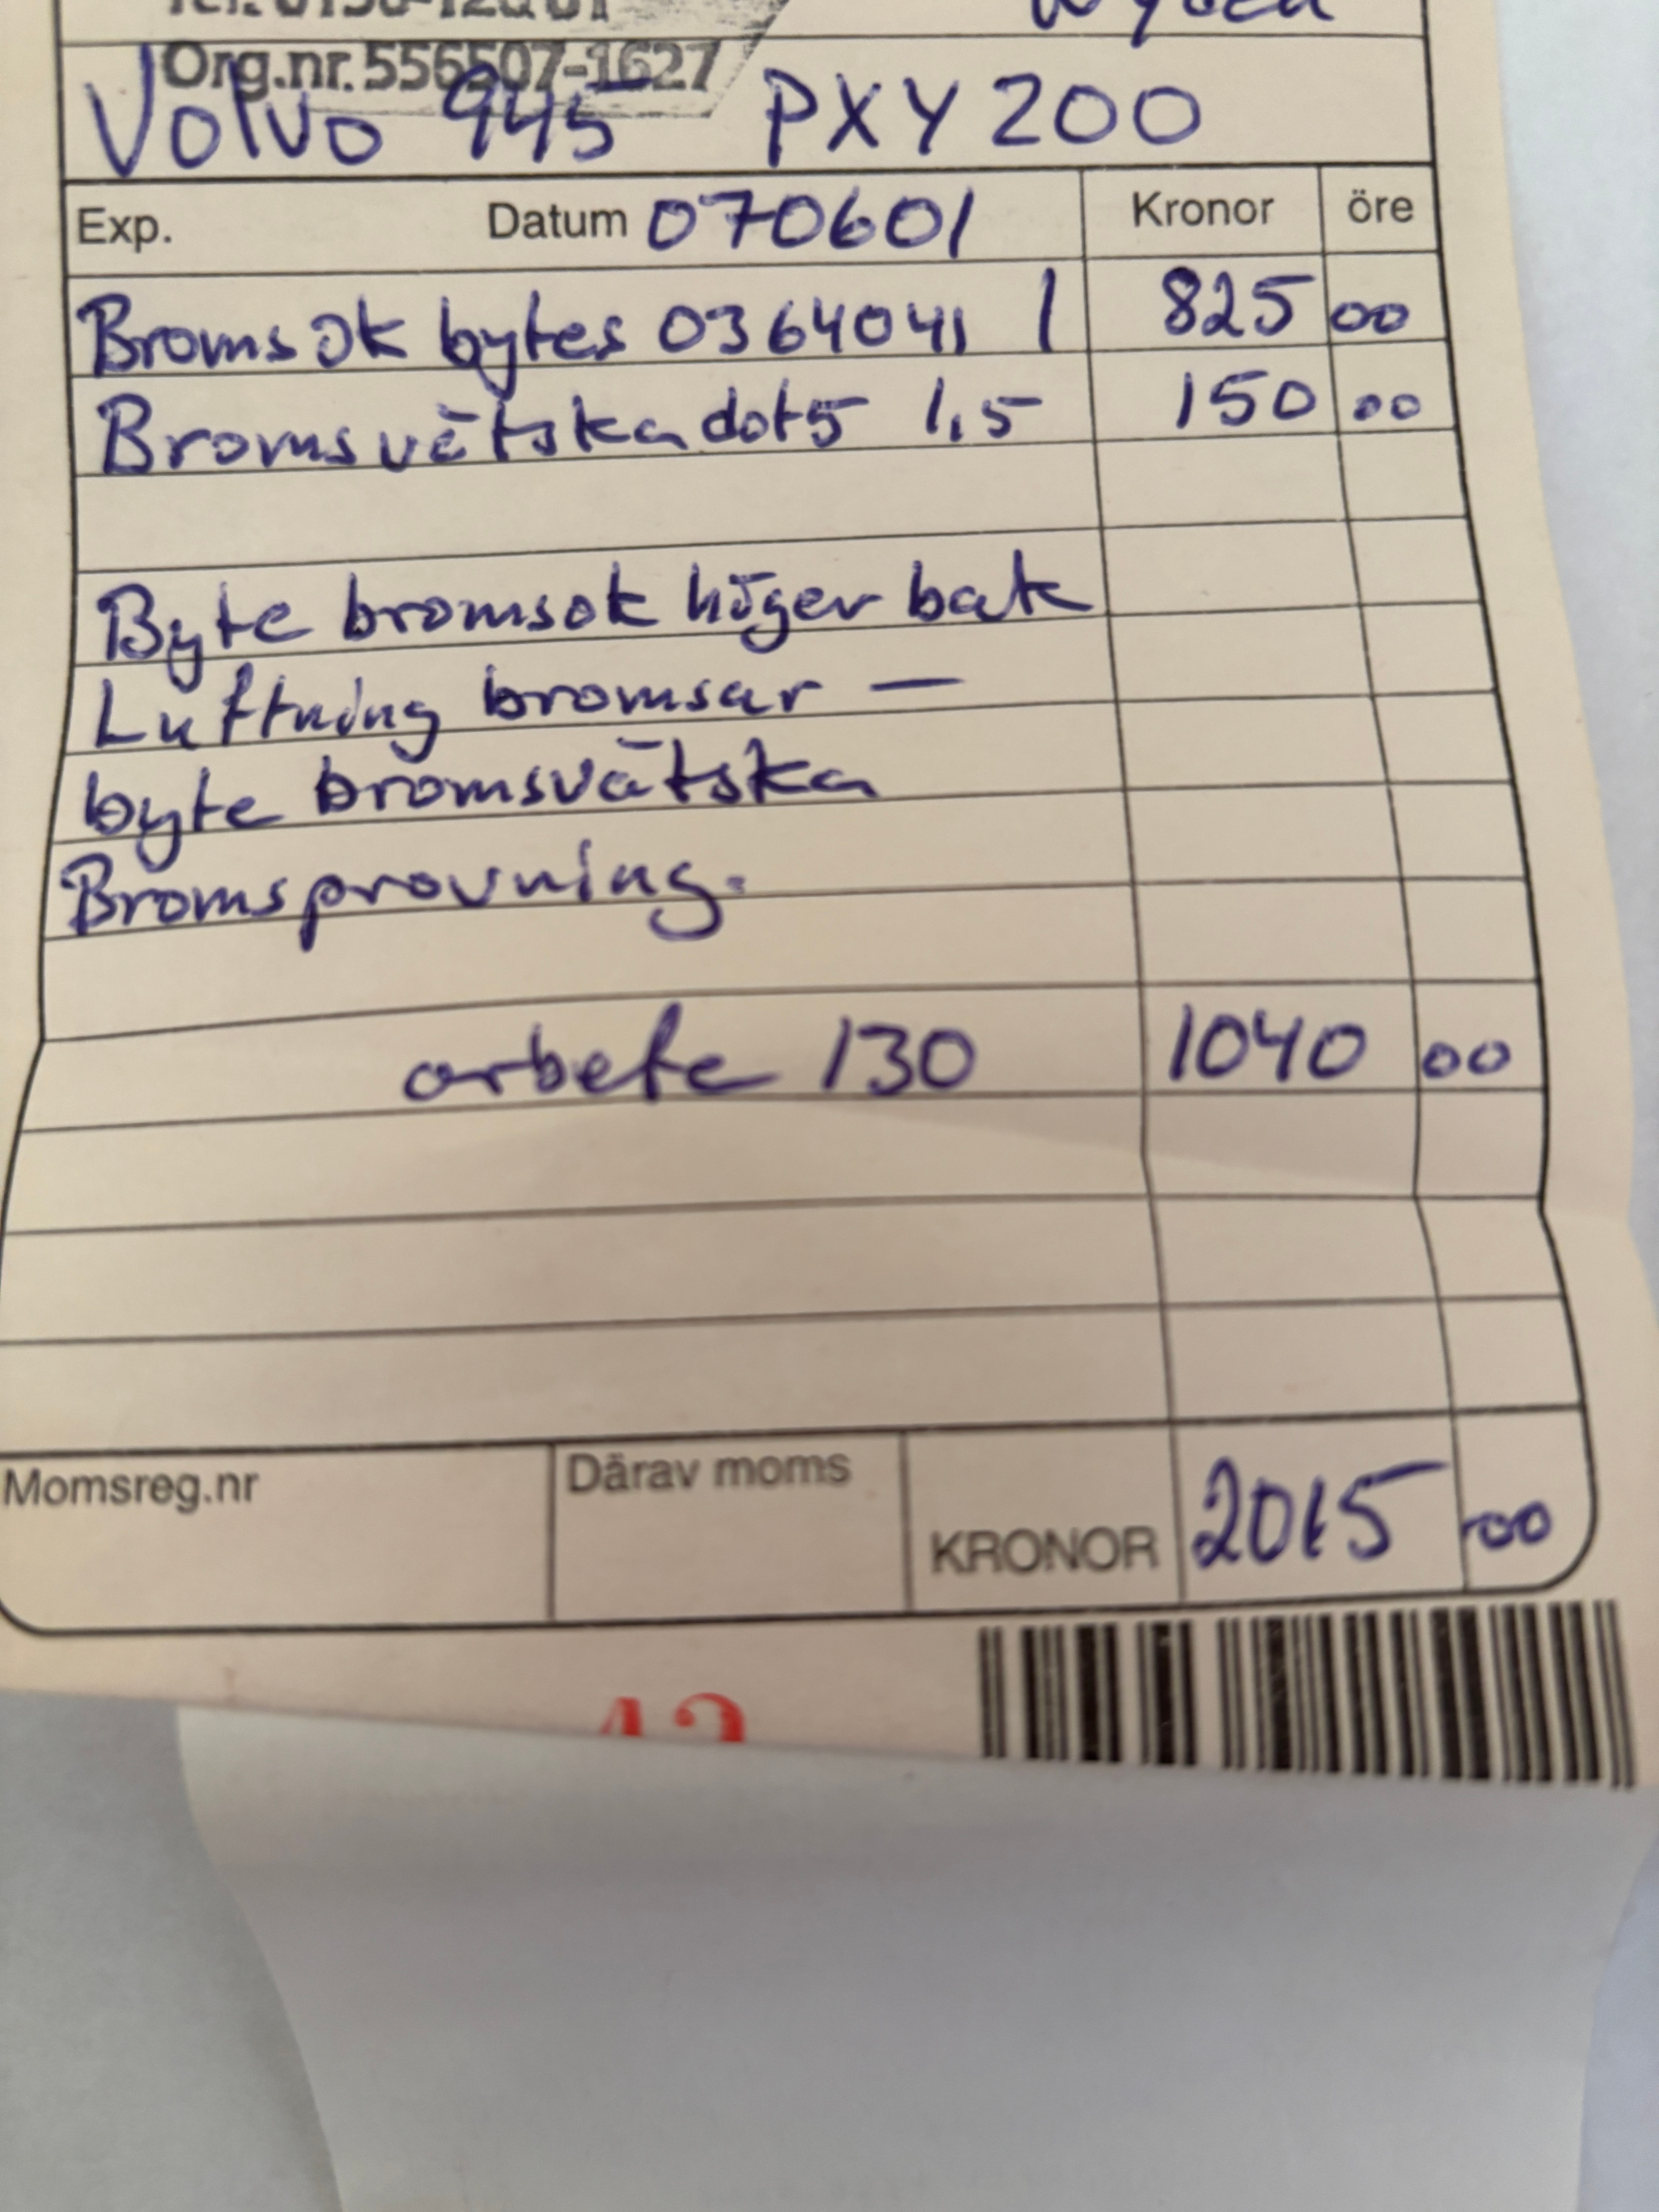 Org.nr. 556507-1627
Volvo 945 PXY 200
Exp. Datum 070601 Kronor öre
Bromsok bytes 0364041 1 825 00
Bromsvätska dot5 1,5 150 00
Byte bromsok höger bak
Luftning bromsar —
byte bromsvätska
Bromsprovning.
arbete 130 1040 00
Momsreg.nr Därav moms KRONOR 2015 00